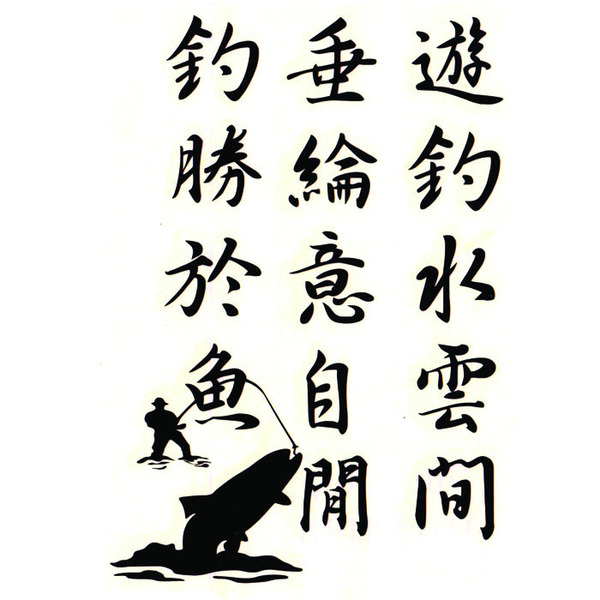 遊釣水雲間
垂綸意自閒
釣勝於魚